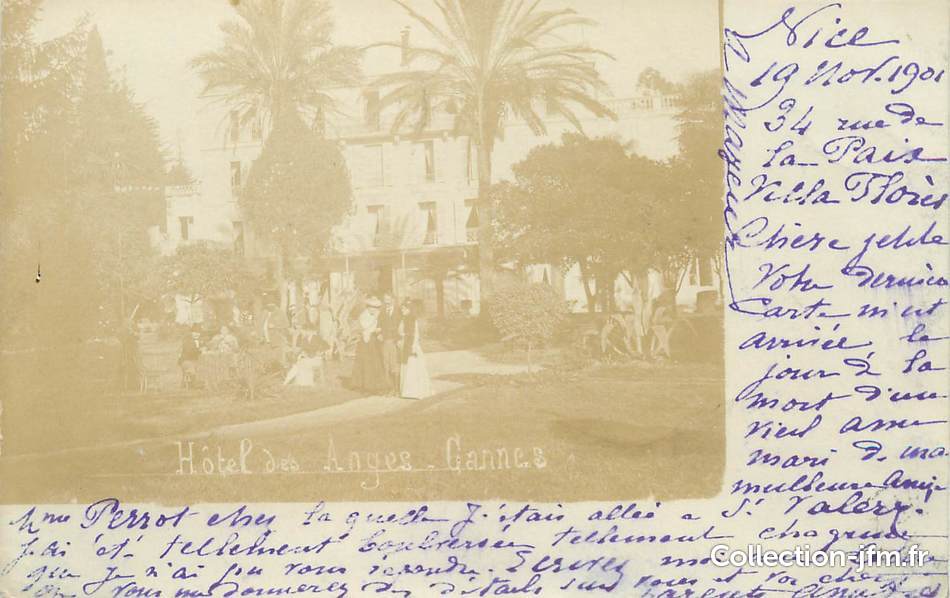 Nice
19 Nov. 1901
34 rue de
la Paix
Villa Florès
Chère petite
Votre dernière
Carte m'est
arrivée le
jour de la
mort d'un
vieil ami
mari de ma
meilleure amie
Mme Perrot chez laquelle j'étais allée a St Valery.
j'ai été tellement bouleversée tellement chagrinée
que je n'ai pu vous répondre. Ecrivez moi
vous me donnerez des détails sur vous et vos chers parents
Hôtel des Anges - Cannes
Collection-jfm.fr